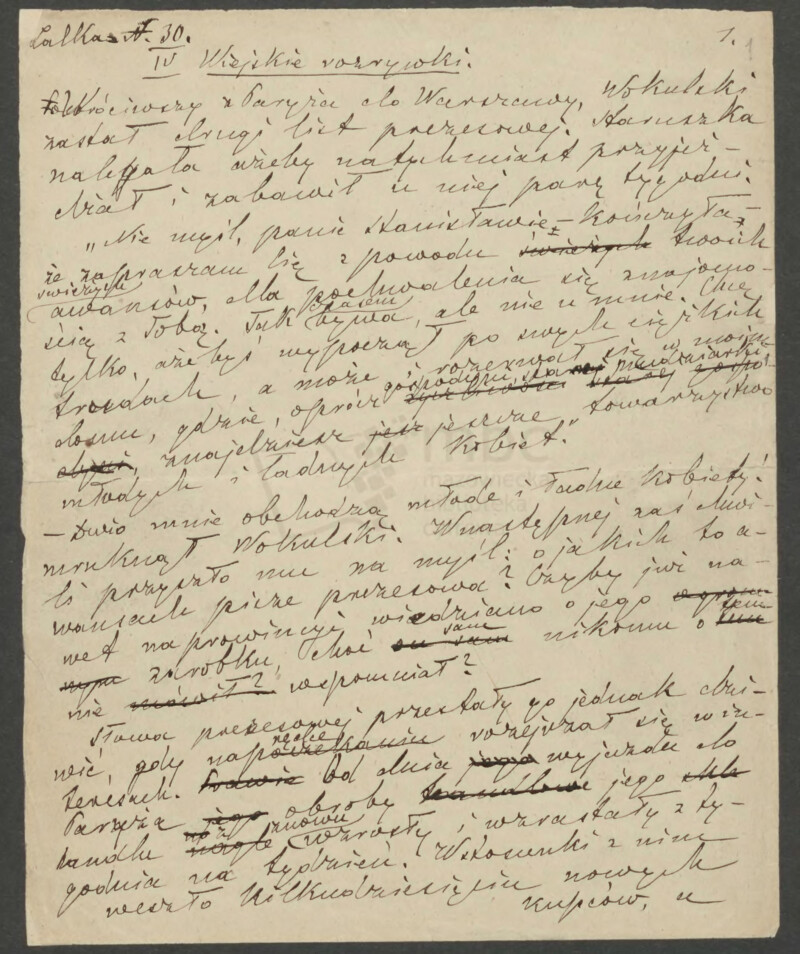 Lalka N. 30. 1.
IV Wiejskie rozrywki.
Powróciwszy z Paryża do Warszawy, Wokulski
zastał drugi list prezesowej. Staruszka
nalegała ażeby natychmiast przyjeż-
dżał i zabawił u niej parę tygodni.
„Nie myśl, panie Stanisławie – kończyła –
że zapraszam Cię z powodu świeżych twoich
świeżych
awansów, dla pochwalenia się znajomo-
ścią z Tobą. Tak czasem bywa, ale nie u mnie. Chcę
tylko, ażebyś wypoczął po swych ciężkich
trudach, a może i rozerwał się w moim
domu, gdzie, oprócz gospodyni, starej nudziarki
, znajdziesz jesz jeszcze towarzystwo
młodych i ładnych kobiet."
– Dużo mnie obchodzą młode i ładne kobiety!
mruknął Wokulski. W następnej zaś chwi-
li przyszło mu na myśl: o jakich to a-
wansach pisze prezesowa? Czyby już na-
wet na prowincyi wiedziano o jego ogrom
nym zarobku, choć on sam sam nikomu o tem
nie mówił? wspomniał?
Słowa prezesowej przestały go jednak dzi-
wić, gdy naprędce rozejrzał się w in-
teresach. Prawie Od dnia jego wyjazdu do
Paryża jego obroty handlowe jego
handlu nagle znowu wzrosły i wzrastały z ty-
godnia na tydzień. W stosunki z nim
weszło kilkudziesięciu nowych
kupców, u